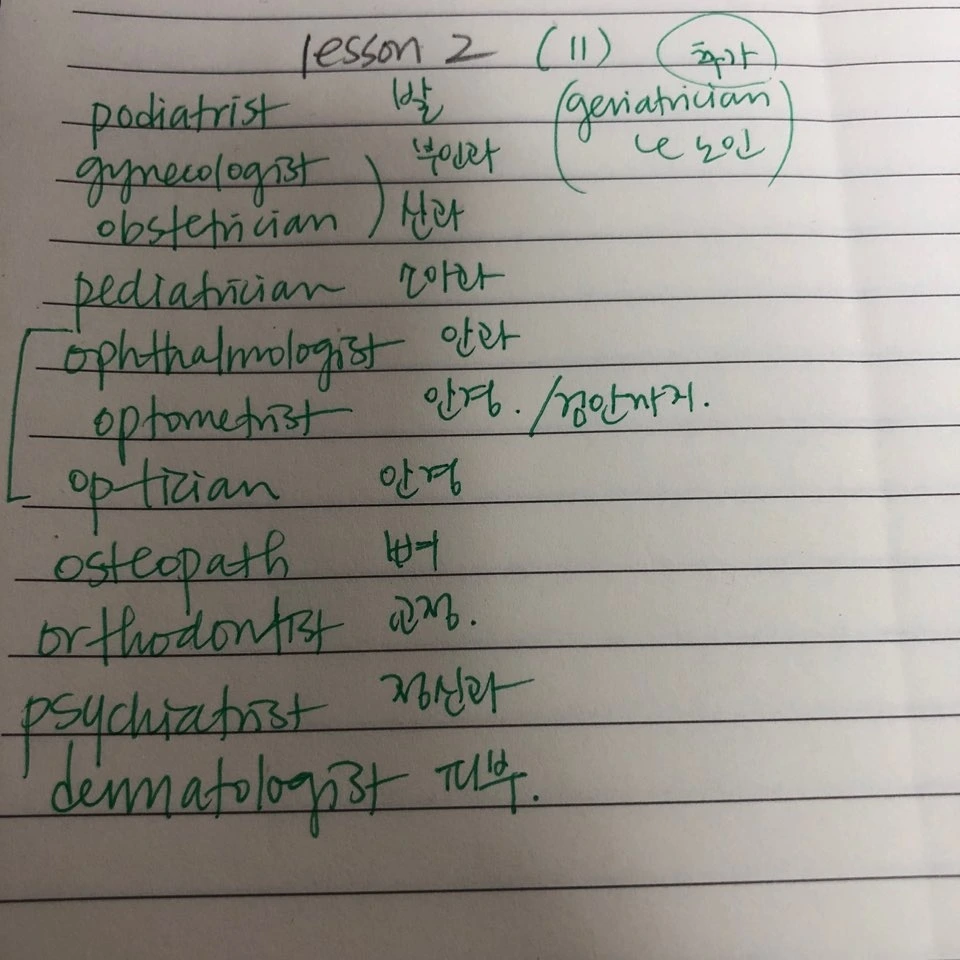 lesson 2 (11) 추가
podiatrist 발 (geriatrician
gynecologist 부인과 ㄴ노인)
obstetrician ) 산과
pediatrician 소아과
ophthalmologist 안과
optometrist 안경. /검안까지.
optician 안경
osteopath 뼈
orthodontist 교정.
psychiatrist 정신과
dermatologist 피부.